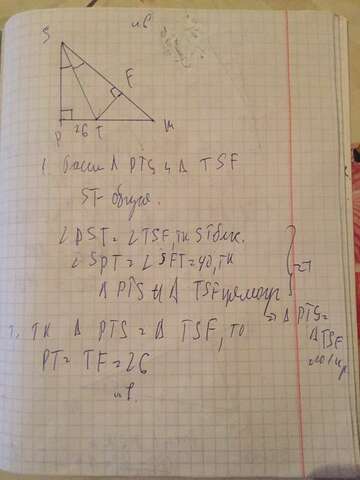 S
F
P 26 T M
1. Рассм Δ PTS и Δ TSF
ST- общая.
∠PST = ∠TSF, тк ST бис.
∠SPT = ∠SFT = 90, тк
Δ PTS и Δ TSF прямоуг
=> Δ PTS =
Δ TSF
Тк Δ PTS = Δ TSF, то
PT = TF = 26